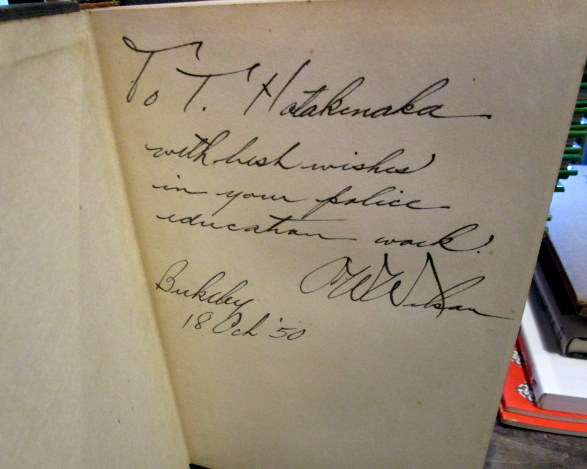 To T. Hatakenaka
with best wishes
in your police
education work.
OW Wilson
Berkeley
18 Oct '50